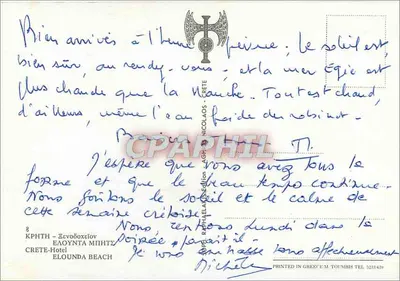 Bien arrivés à l'heure prévue ; le soleil est,
bien sûr, au rendez-vous ; et la mer Egée est
plus chaude que la Manche. Tout est chaud,
d'ailleurs, même l'eau froide des robinets.
J'espère que vous avez tous la
forme et que le beau temps continue.
Nous goûtons le soleil et le calme de
cette semaine crétoise.
Nous rentrons lundi dans la
soirée paraît-il.
Je vous embrasse tous affectueusement
Michèle
8
ΚΡΗΤΗ - Ξενοδοχείον
ΕΛΟΥΝΤΑ ΜΠΗΤΣ
CRETE-Hotel
ELOUNDA BEACH
NICOLAOS - CRETE
CPAPHIL
PRINTED IN GREECE